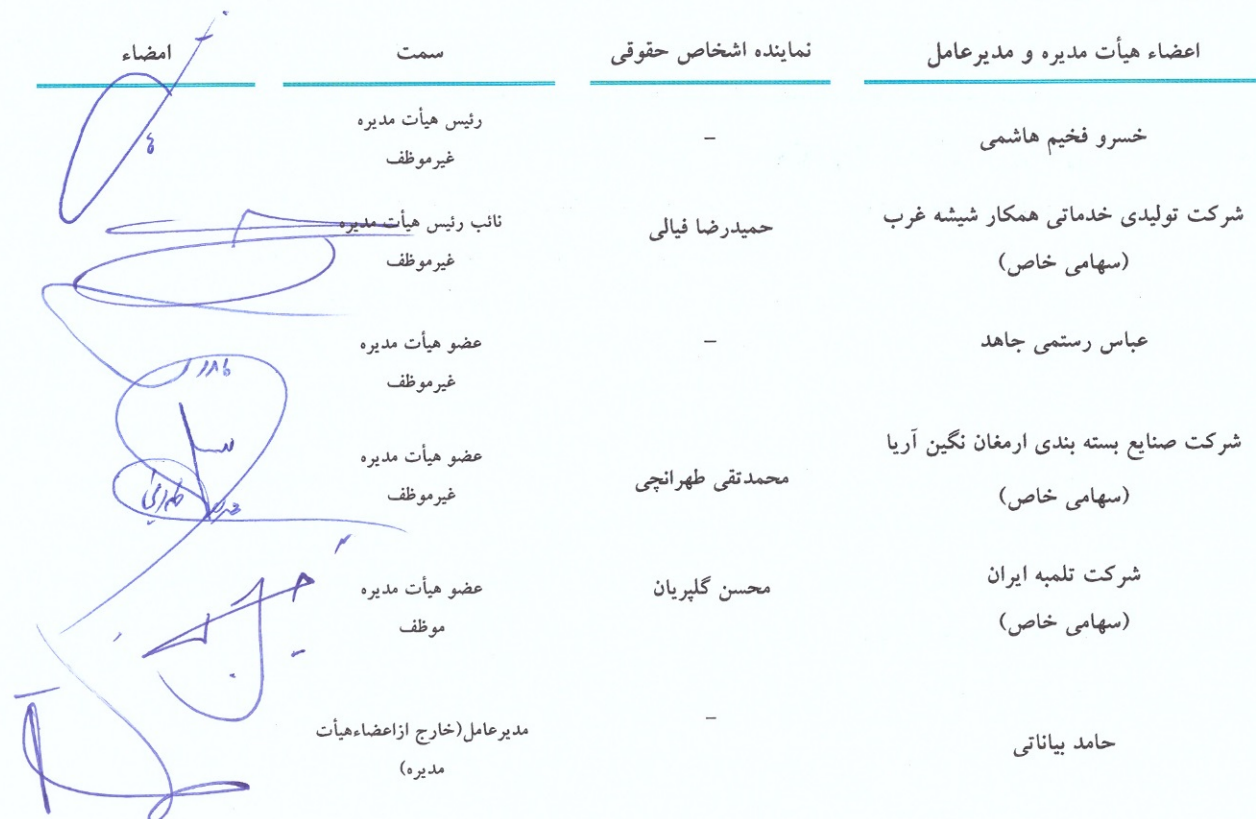 اعضاء هیأت مدیره و مدیرعامل نماینده اشخاص حقوقی سمت امضاء
خسرو فخیم هاشمی – رئیس هیأت مدیره
غیرموظف
شرکت تولیدی خدماتی همکار شیشه غرب حمیدرضا فیالی نائب رئیس هیأت مدیره
(سهامی خاص) غیرموظف
عباس رستمی جاهد – عضو هیأت مدیره
غیرموظف
شرکت صنایع بسته بندی ارمغان نگین آریا محمدتقی طهرانچی عضو هیأت مدیره
(سهامی خاص) غیرموظف
شرکت تلمبه ایران محسن گلپریان عضو هیأت مدیره
(سهامی خاص) موظف
حامد بیاناتی – مدیرعامل(خارج ازاعضاءهیأت
مدیره)